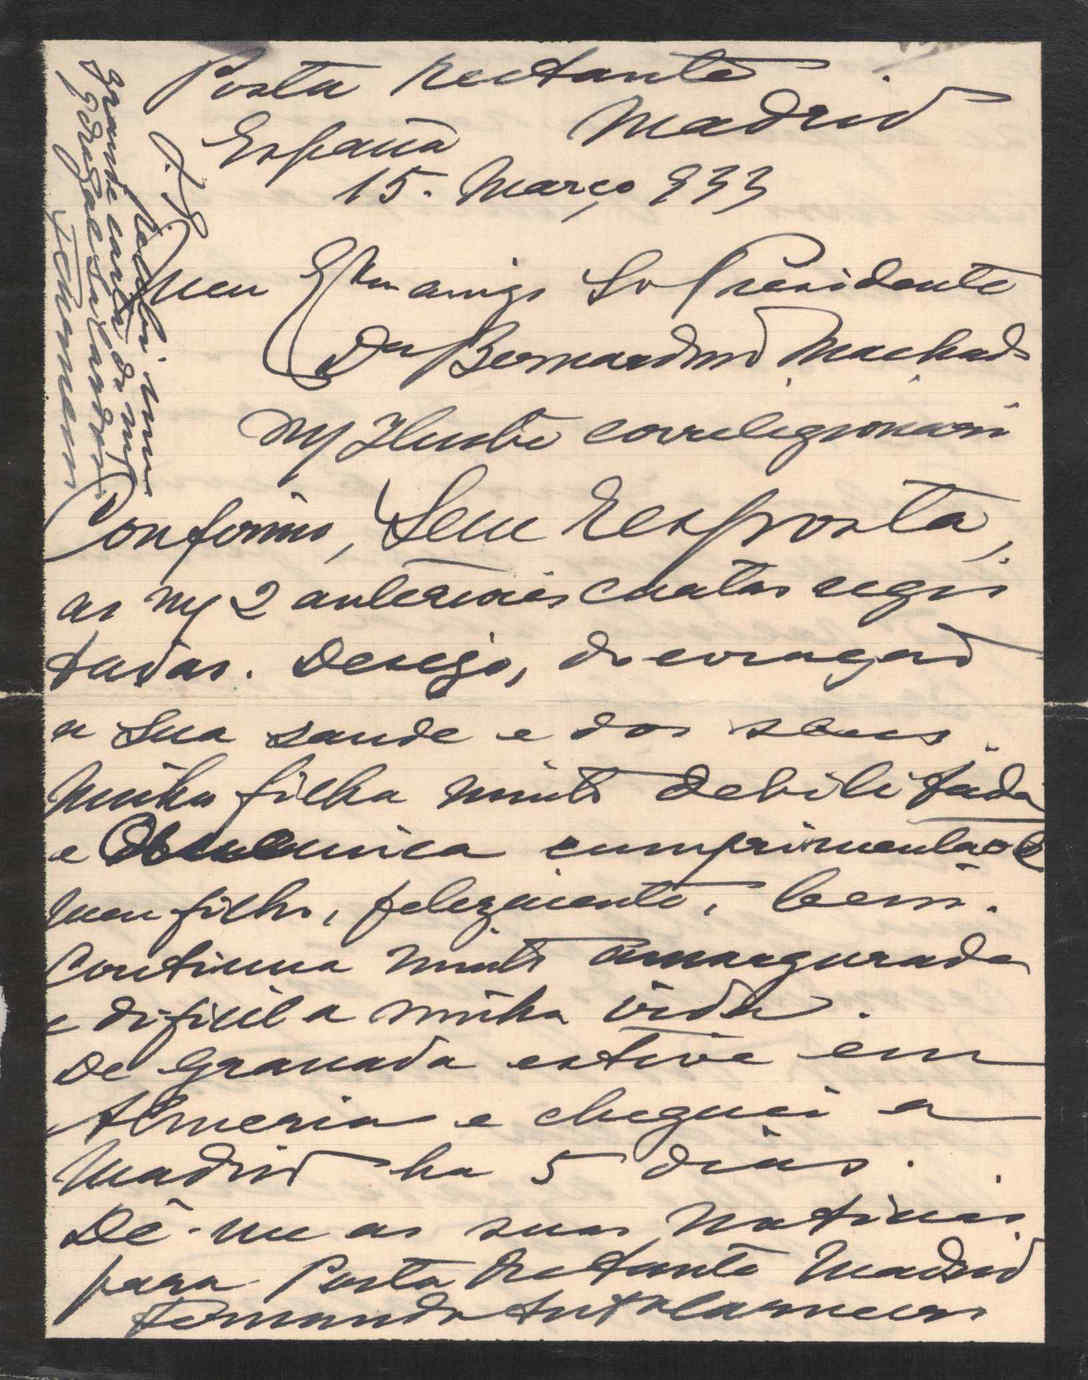 Posta Restante
Madrid
España
15. Março 933
Meu Exmo amigo Sr Presidente
Dr Bernardino Machado
My Ilustre correligionario
Confirmo, Sem Resposta,
as my 2 anteriores cartas regis
tadas. Desejo, do coração
a sua saude e dos seus.
Minha filha muito debilitada
e unica cumprimenta-o
Meu filho, felizmente, bem.
Continua muito amargurada
e dificil a minha vida.
De Granada estive em
Almeria e cheguei a
Madrid ha 5 dias.
Dê-me as suas noticias
para Posta Restante Madrid
Fernando
P.S.
Recebi uma
grande carta do